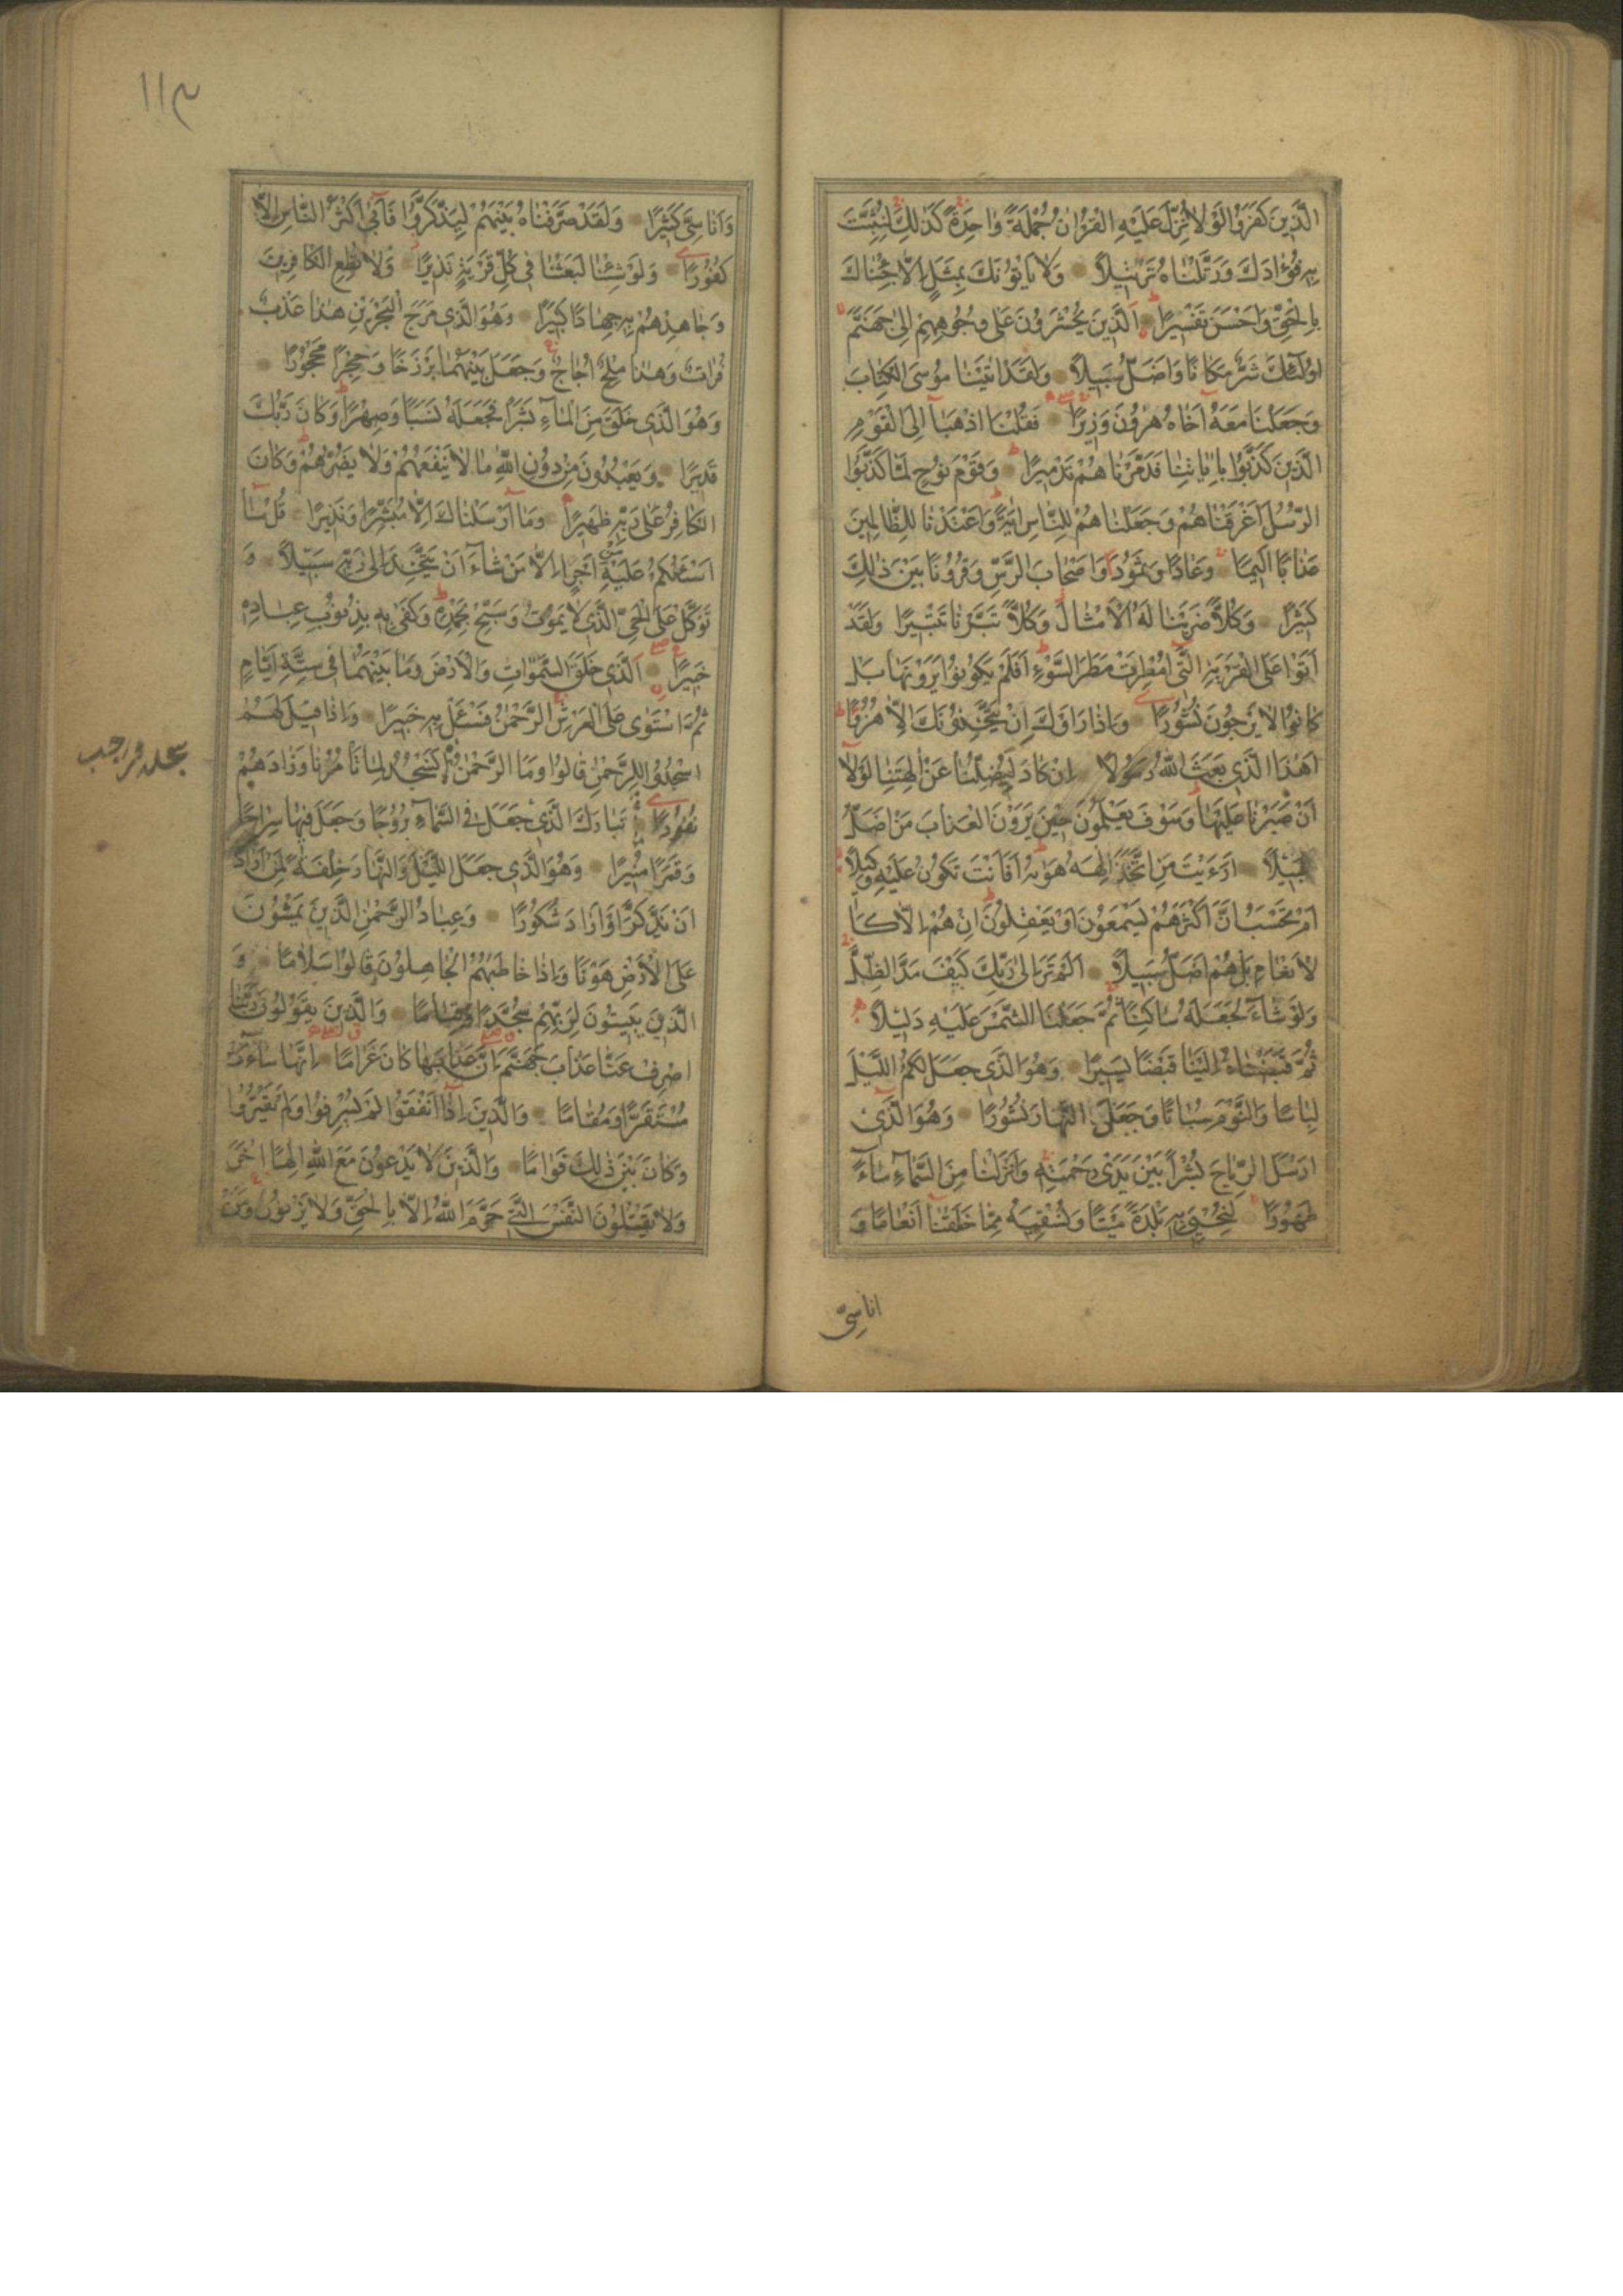 الَّذِينَ كَفَرُوا لَوْلَا نُزِّلَ عَلَيْهِ الْقُرْاٰنُ جُمْلَةً وَاحِدَةً كَذٰلِكَ لِنُثَبِّتَ
بِهِ فُؤٰادَكَ وَرَتَّلْنَاهُ تَرْتِيلًا وَلَا يَأْتُونَكَ بِمَثَلٍ اِلَّا جِئْنَاكَ
بِالْحَقِّ وَاَحْسَنَ تَفْسِيرًا اَلَّذِينَ يُحْشَرُونَ عَلٰى وُجُوهِهِمْ اِلٰى جَهَنَّمَ
اُولٰئِكَ شَرٌّ مَكَانًا وَاَضَلُّ سَبِيلًا وَلَقَدْ اٰتَيْنَا مُوسَى الْكِتَابَ
وَجَعَلْنَا مَعَهُ اَخَاهُ هٰرُونَ وَزِيرًا فَقُلْنَا اذْهَبَا اِلَى الْقَوْمِ
الَّذِينَ كَذَّبُوا بِاٰيَاتِنَا فَدَمَّرْنَاهُمْ تَدْمِيرًا وَقَوْمَ نُوحٍ لَمَّا كَذَّبُوا
الرُّسُلَ اَغْرَقْنَاهُمْ وَجَعَلْنَاهُمْ لِلنَّاسِ اٰيَةً وَاَعْتَدْنَا لِلظَّالِمِينَ
عَذَابًا اَلِيمًا وَعَادًا وَثَمُودَا وَاَصْحَابَ الرَّسِّ وَقُرُونًا بَيْنَ ذٰلِكَ
كَثِيرًا وَكُلًّا ضَرَبْنَا لَهُ الْاَمْثَالَ وَكُلًّا تَبَّرْنَا تَتْبِيرًا وَلَقَدْ
اَتَوْا عَلَى الْقَرْيَةِ الَّتِي اُمْطِرَتْ مَطَرَ السَّوْءِ اَفَلَمْ يَكُونُوا يَرَوْنَهَا بَلْ
كَانُوا لَا يَرْجُونَ نُشُورًا وَاِذَا رَاَوْكَ اِنْ يَتَّخِذُونَكَ اِلَّا هُزُوًا
اَهٰذَا الَّذِي بَعَثَ اللّٰهُ رَسُولًا اِنْ كَادَ لَيُضِلُّنَا عَنْ اٰلِهَتِنَا لَوْلَا
اَنْ صَبَرْنَا عَلَيْهَا وَسَوْفَ يَعْلَمُونَ حِينَ يَرَوْنَ الْعَذَابَ مَنْ اَضَلُّ
سَبِيلًا اَرَءَيْتَ مَنِ اتَّخَذَ اِلٰهَهُ هَوٰيهُ اَفَاَنْتَ تَكُونُ عَلَيْهِ وَكِيلًا
اَمْ تَحْسَبُ اَنَّ اَكْثَرَهُمْ يَسْمَعُونَ اَوْ يَعْقِلُونَ اِنْ هُمْ اِلَّا كَا
لْاَنْعَامِ بَلْ هُمْ اَضَلُّ سَبِيلًا اَلَمْ تَرَ اِلٰى رَبِّكَ كَيْفَ مَدَّ الظِّلَّ
وَلَوْ شَاءَ لَجَعَلَهُ سَاكِنًا ثُمَّ جَعَلْنَا الشَّمْسَ عَلَيْهِ دَلِيلًا
ثُمَّ قَبَضْنَاهُ اِلَيْنَا قَبْضًا يَسِيرًا وَهُوَ الَّذِي جَعَلَ لَكُمُ اللَّيْلَ
لِبَاسًا وَالنَّوْمَ سُبَاتًا وَجَعَلَ النَّهَارَ نُشُورًا وَهُوَ الَّذِي
اَرْسَلَ الرِّيَاحَ بُشْرًا بَيْنَ يَدَيْ رَحْمَتِهِ وَاَنْزَلْنَا مِنَ السَّمَاءِ مَاءً
طَهُورًا لِنُحْيِيَ بِهِ بَلْدَةً مَيْتًا وَنُسْقِيَهُ مِمَّا خَلَقْنَا اَنْعَامًا وَ
اناسِيَّ
١١٣
وَاَنَاسِيَّ كَثِيرًا وَلَقَدْ صَرَّفْنَاهُ بَيْنَهُمْ لِيَذَّكَّرُوا فَاَبٰى اَكْثَرُ النَّاسِ اِلَّا
كُفُورًا وَلَوْ شِئْنَا لَبَعَثْنَا فِي كُلِّ قَرْيَةٍ نَذِيرًا وَلَا تُطِعِ الْكَافِرِينَ
وَجَاهِدْهُمْ بِهِ جِهَادًا كَبِيرًا وَهُوَ الَّذِي مَرَجَ الْبَحْرَيْنِ هٰذَا عَذْبٌ
فُرَاتٌ وَهٰذَا مِلْحٌ اُجَاجٌ وَجَعَلَ بَيْنَهُمَا بَرْزَخًا وَحِجْرًا مَحْجُورًا
وَهُوَ الَّذِي خَلَقَ مِنَ الْمَاءِ بَشَرًا فَجَعَلَهُ نَسَبًا وَصِهْرًا وَكَانَ رَبُّكَ
قَدِيرًا وَيَعْبُدُونَ مِنْ دُونِ اللّٰهِ مَا لَا يَنْفَعُهُمْ وَلَا يَضُرُّهُمْ وَكَانَ
الْكَافِرُ عَلٰى رَبِّهِ ظَهِيرًا وَمَا اَرْسَلْنَاكَ اِلَّا مُبَشِّرًا وَنَذِيرًا قُلْ مَا
اَسْئَلُكُمْ عَلَيْهِ مِنْ اَجْرٍ اِلَّا مَنْ شَاءَ اَنْ يَتَّخِذَ اِلٰى رَبِّهِ سَبِيلًا وَ
تَوَكَّلْ عَلَى الْحَيِّ الَّذِي لَا يَمُوتُ وَسَبِّحْ بِحَمْدِهِ وَكَفٰى بِهِ بِذُنُوبِ عِبَادِهِ
خَبِيرًا اَلَّذِي خَلَقَ السَّمٰوَاتِ وَالْاَرْضَ وَمَا بَيْنَهُمَا فِي سِتَّةِ اَيَّامٍ
ثُمَّ اسْتَوٰى عَلَى الْعَرْشِ الرَّحْمٰنُ فَسْئَلْ بِهِ خَبِيرًا وَاِذَا قِيلَ لَهُمُ
اسْجُدُوا لِلرَّحْمٰنِ قَالُوا وَمَا الرَّحْمٰنُ اَنَسْجُدُ لِمَا تَأْمُرُنَا وَزَادَهُمْ
نُفُورًا تَبَارَكَ الَّذِي جَعَلَ فِي السَّمَاءِ بُرُوجًا وَجَعَلَ فِيهَا سِرَاجًا
وَقَمَرًا مُنِيرًا وَهُوَ الَّذِي جَعَلَ اللَّيْلَ وَالنَّهَارَ خِلْفَةً لِمَنْ اَرَادَ
اَنْ يَذَّكَّرَ اَوْ اَرَادَ شُكُورًا وَعِبَادُ الرَّحْمٰنِ الَّذِينَ يَمْشُونَ
عَلَى الْاَرْضِ هَوْنًا وَاِذَا خَاطَبَهُمُ الْجَاهِلُونَ قَالُوا سَلَامًا وَ
الَّذِينَ يَبِيتُونَ لِرَبِّهِمْ سُجَّدًا وَقِيَامًا وَالَّذِينَ يَقُولُونَ رَبَّنَا
اصْرِفْ عَنَّا عَذَابَ جَهَنَّمَ اِنَّ عَذَابَهَا كَانَ غَرَامًا اِنَّهَا سَاءَتْ
مُسْتَقَرًّا وَمُقَامًا وَالَّذِينَ اِذَا اَنْفَقُوا لَمْ يُسْرِفُوا وَلَمْ يَقْتُرُوا
وَكَانَ بَيْنَ ذٰلِكَ قَوَامًا وَالَّذِينَ لَا يَدْعُونَ مَعَ اللّٰهِ اِلٰهًا اٰخَرَ
وَلَا يَقْتُلُونَ النَّفْسَ الَّتِي حَرَّمَ اللّٰهُ اِلَّا بِالْحَقِّ وَلَا يَزْنُونَ وَمَنْ